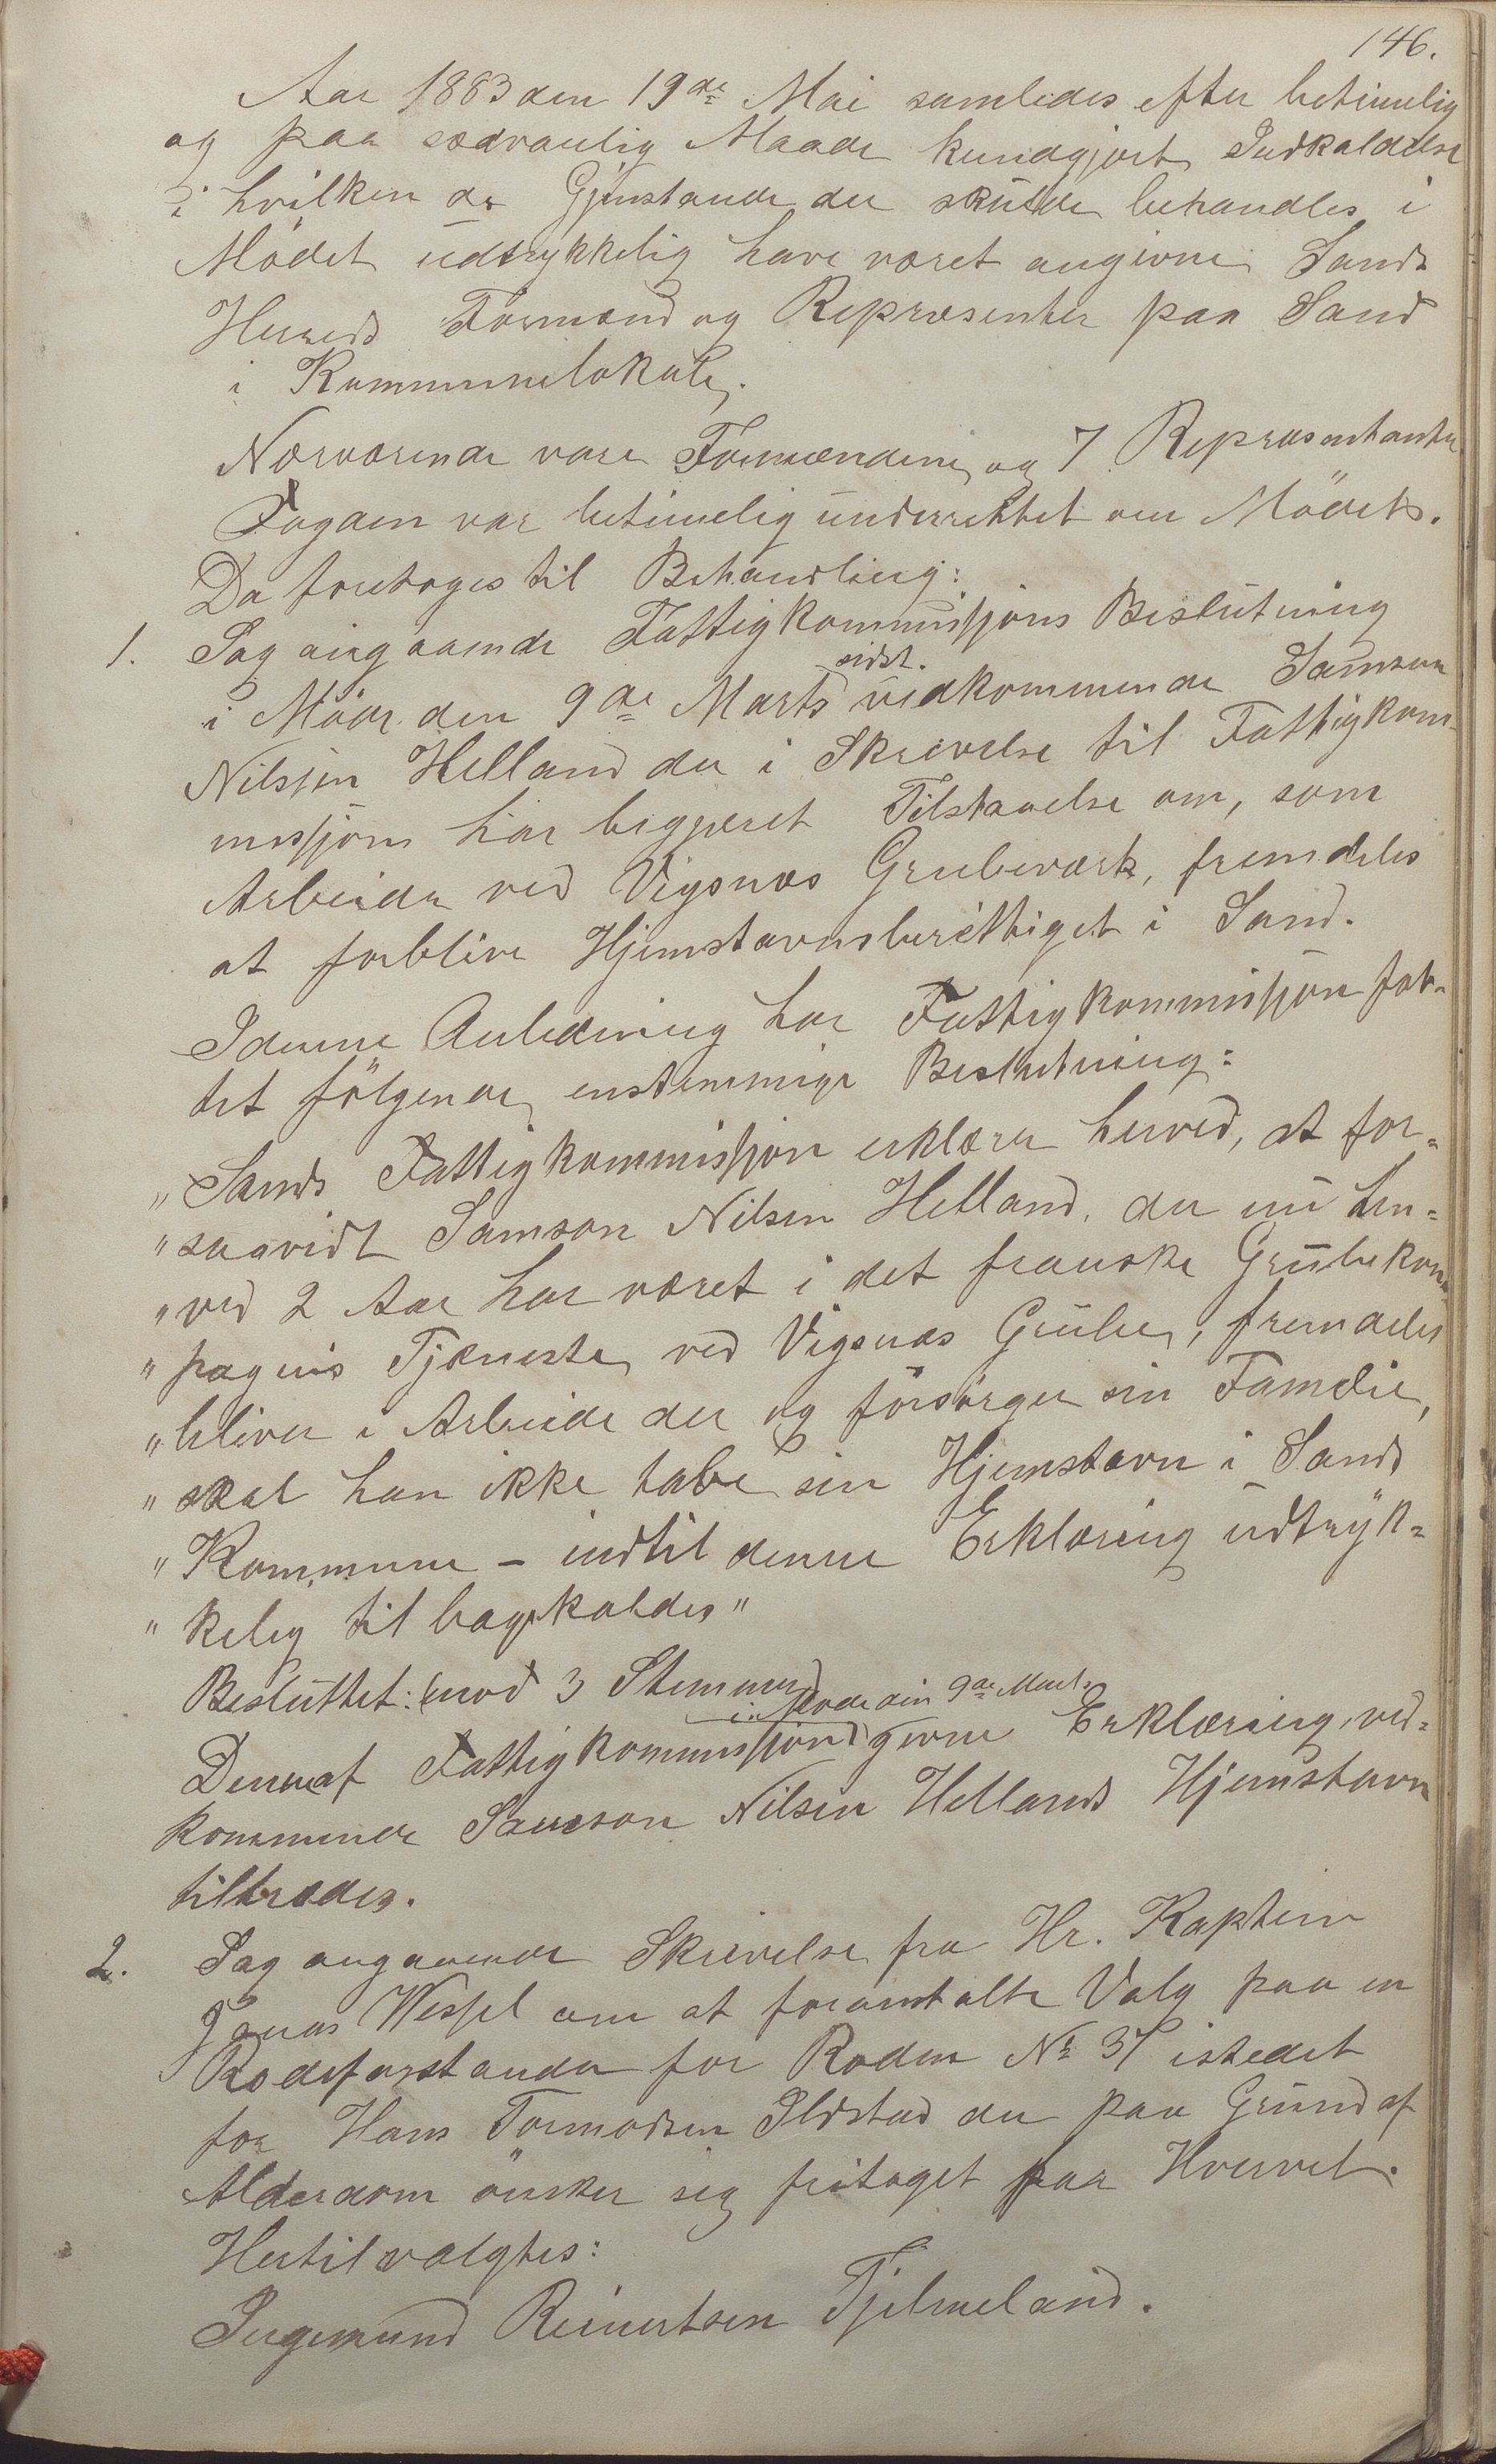 146.
Aar 1883 den 19de Mai samledes efter betimelig
og paa sædvanlig Maade kundgjort Indkaldelse
i hvilken de Gjenstande der skulde behandles i
Mödet udtrykkelig have været angivne Sands
Herreds Formænd og Repræsenter paa Sand
i Kommunelokale.
Nærværende vare Formændene og 7 Repræsentanter
Fogden var betimelig underrettet om Mödet.
Da foretoges til Behandling:
1. Sag angaaende Fattigkommissjons Beslutning
i Möde den 9de Marts sidst. vedkommende Samson
Nilssen Helland der i Skrivelse til Fattigkom-
missjonen har begjæret Tilstaaelse om, som
Arbeider ved Vigsnæs Grubeværk, fremdeles
at forblive Hjemstavnsberettiget i Sand.
I denne Anledning har Fattigkommissjonen fat-
tet fölgende enstemmige Beslutning:
"Sands Fattigkommissjon erklærer herved, at for=
"saavidt Samson Nilsen Helland, der nu hen=
"ved 2 Aar har været i det franske Grubekom
"pagnis Tjæneste ved Vigsnæs Gruber, fremdeles
"bliver i Arbeide der og forsörger sin Familie,
"skal han ikke tabe sin Hjemstavn i Sands
"Kommune – indtil denne Erklæring udtryk=
"kelig tilbagekaldes"
Besluttet: (mod 3 Stemmer)
i Möde den 9de Marts
Den af Fattigkommissjonen givne Erklæring ved=
kommende Samson Nilsen Hellands Hjemstavn
tiltrædes.
2. Sag angaaende Skrivelse fra Hr. Kaptein
Jonas Wessel om at foranstalte Valg paa en
Rodeforstander for Roden No 37 istedet
for Hans Tormodsen Ilstad der paa Grund af
Alderdom önsker sig fritaget for Hvervet.
Hertil valgtes:
Ingemund Reinertsen Tjelmeland.